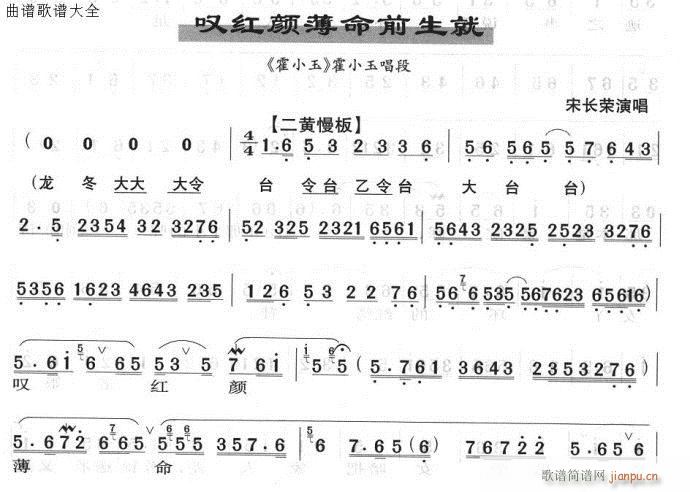 曲谱歌谱大全
叹红颜薄命前生就
《霍小玉》霍小玉唱段
宋长荣演唱
【二黄慢板】
( 0 0 0 0 | 4/4 1·6 5 3 2 3 3 6 | 56 565 5 7 643 |
(龙 冬 大大 大令 台 令台 乙令台 大 台 台)
2·5 2354 32 3276 | 52 325 2321 6561 | 5643 2325 2523 3276 |
5356 1623 4643 235 | 126 53 22 76 | 56 7 6535 567623 65616) |
5·61 5 6 665 53 ∨ 5 7 61 | 5 1 5 (5·761 3643 2353276 |
叹 红 颜
5·672 665 7 ∨ 5 555 357·6 | 6 7·65 (6 | 76722·65 ∨ 6 |
薄 命
歌谱简谱网
jianpu.cn